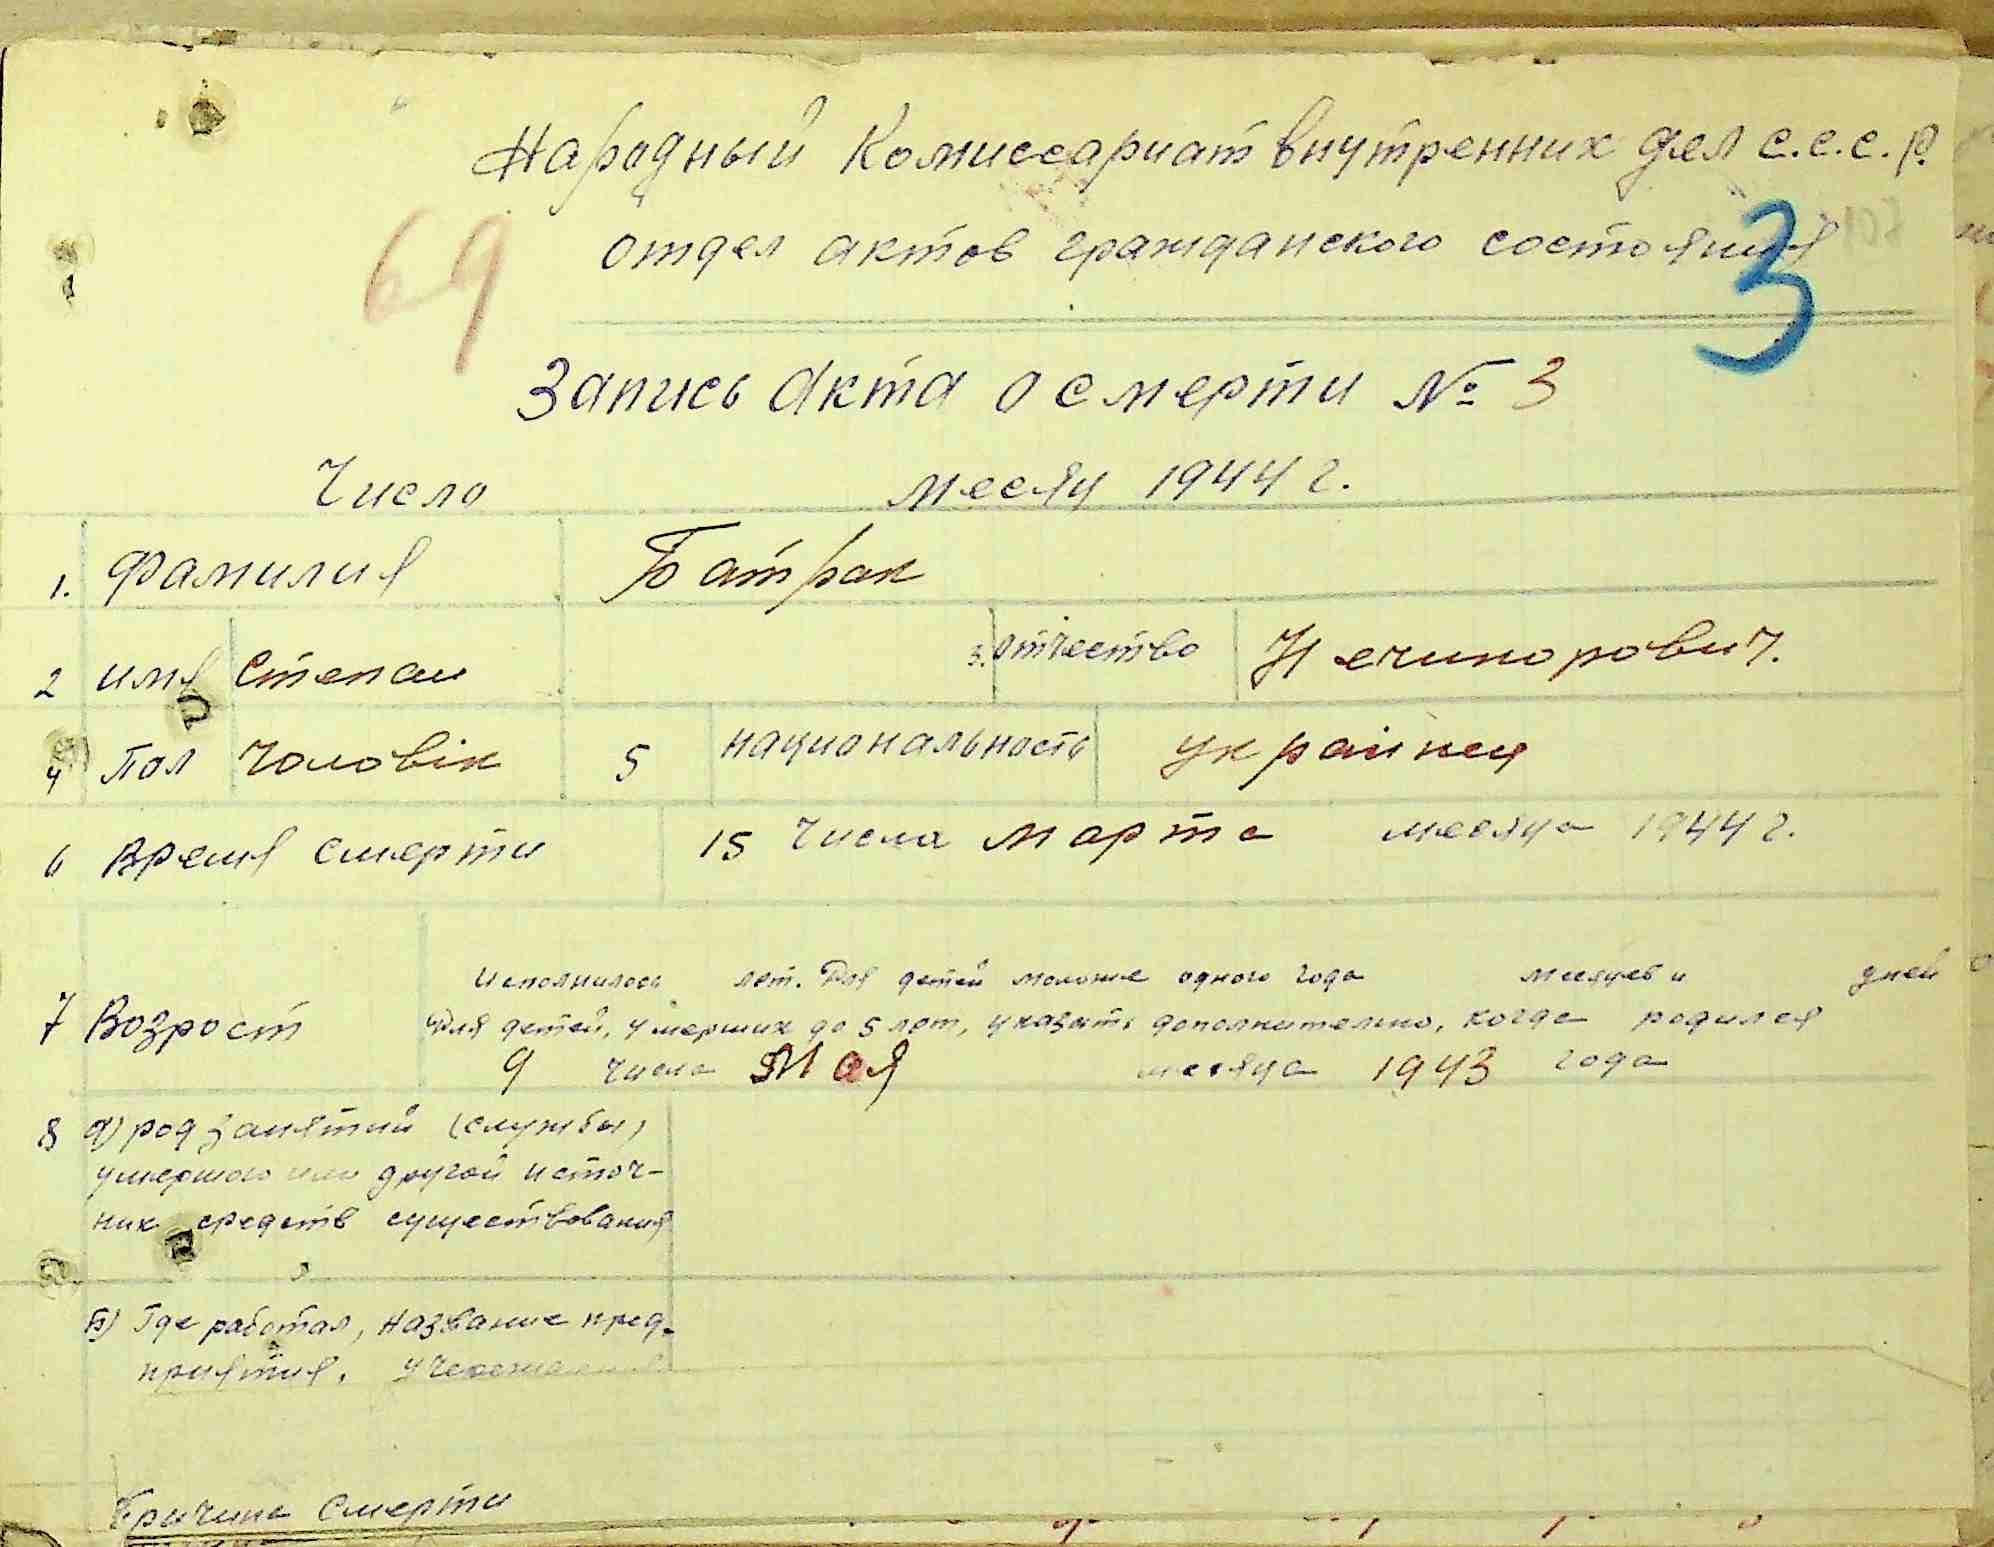 Народный Комиссариат внутренних дел С.С.С.Р.
69 отдел актов гражданского состояния
3
Запись акта о смерти № 3
Число месяц 1944 г.
1. Фамилия Батрак
2 имя Степан 3. отчество Нечипорович.
4 Пол чоловік 5 национальность українец
6 Время смерти 15 числа марта месяца 1944 г.
Исполнилось лет. Для детей моложе одного года месяцев и дней
7 Возраст Для детей, умерших до 5 лет, указать дополнительно, когда родился
9 числа мая месяца 1943 года
8 а) род занятий (службы)
умершого или другой источ-
ник средств существования
б) Где работал, название пред-
приятия,
Причина смерти